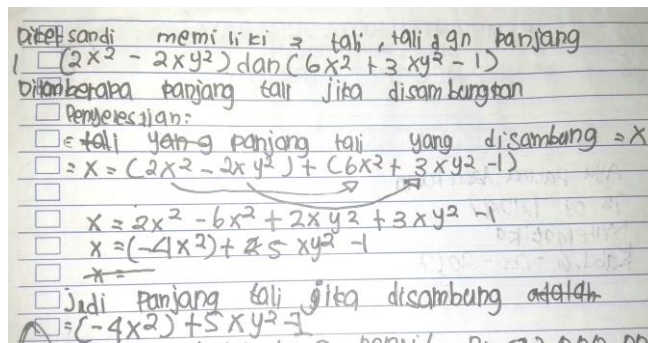 Diket sandi memiliki 2 tali, tali dgn panjang
1 (2x² - 2xy²) dan (6x² + 3xy² - 1)
Ditanberapa panjang tali jika disambungkan
Penyelesaian:
= tali yang panjang tali yang disambung = x
= x = (2x² - 2xy²) + (6x² + 3xy² - 1)
x = 2x² - 6x² + 2xy² + 3xy² - 1
x = (-4x²) + 5xy² - 1
x =
Jadi panjang tali jika disambung adalah
= (-4x²) + 5xy² - 1